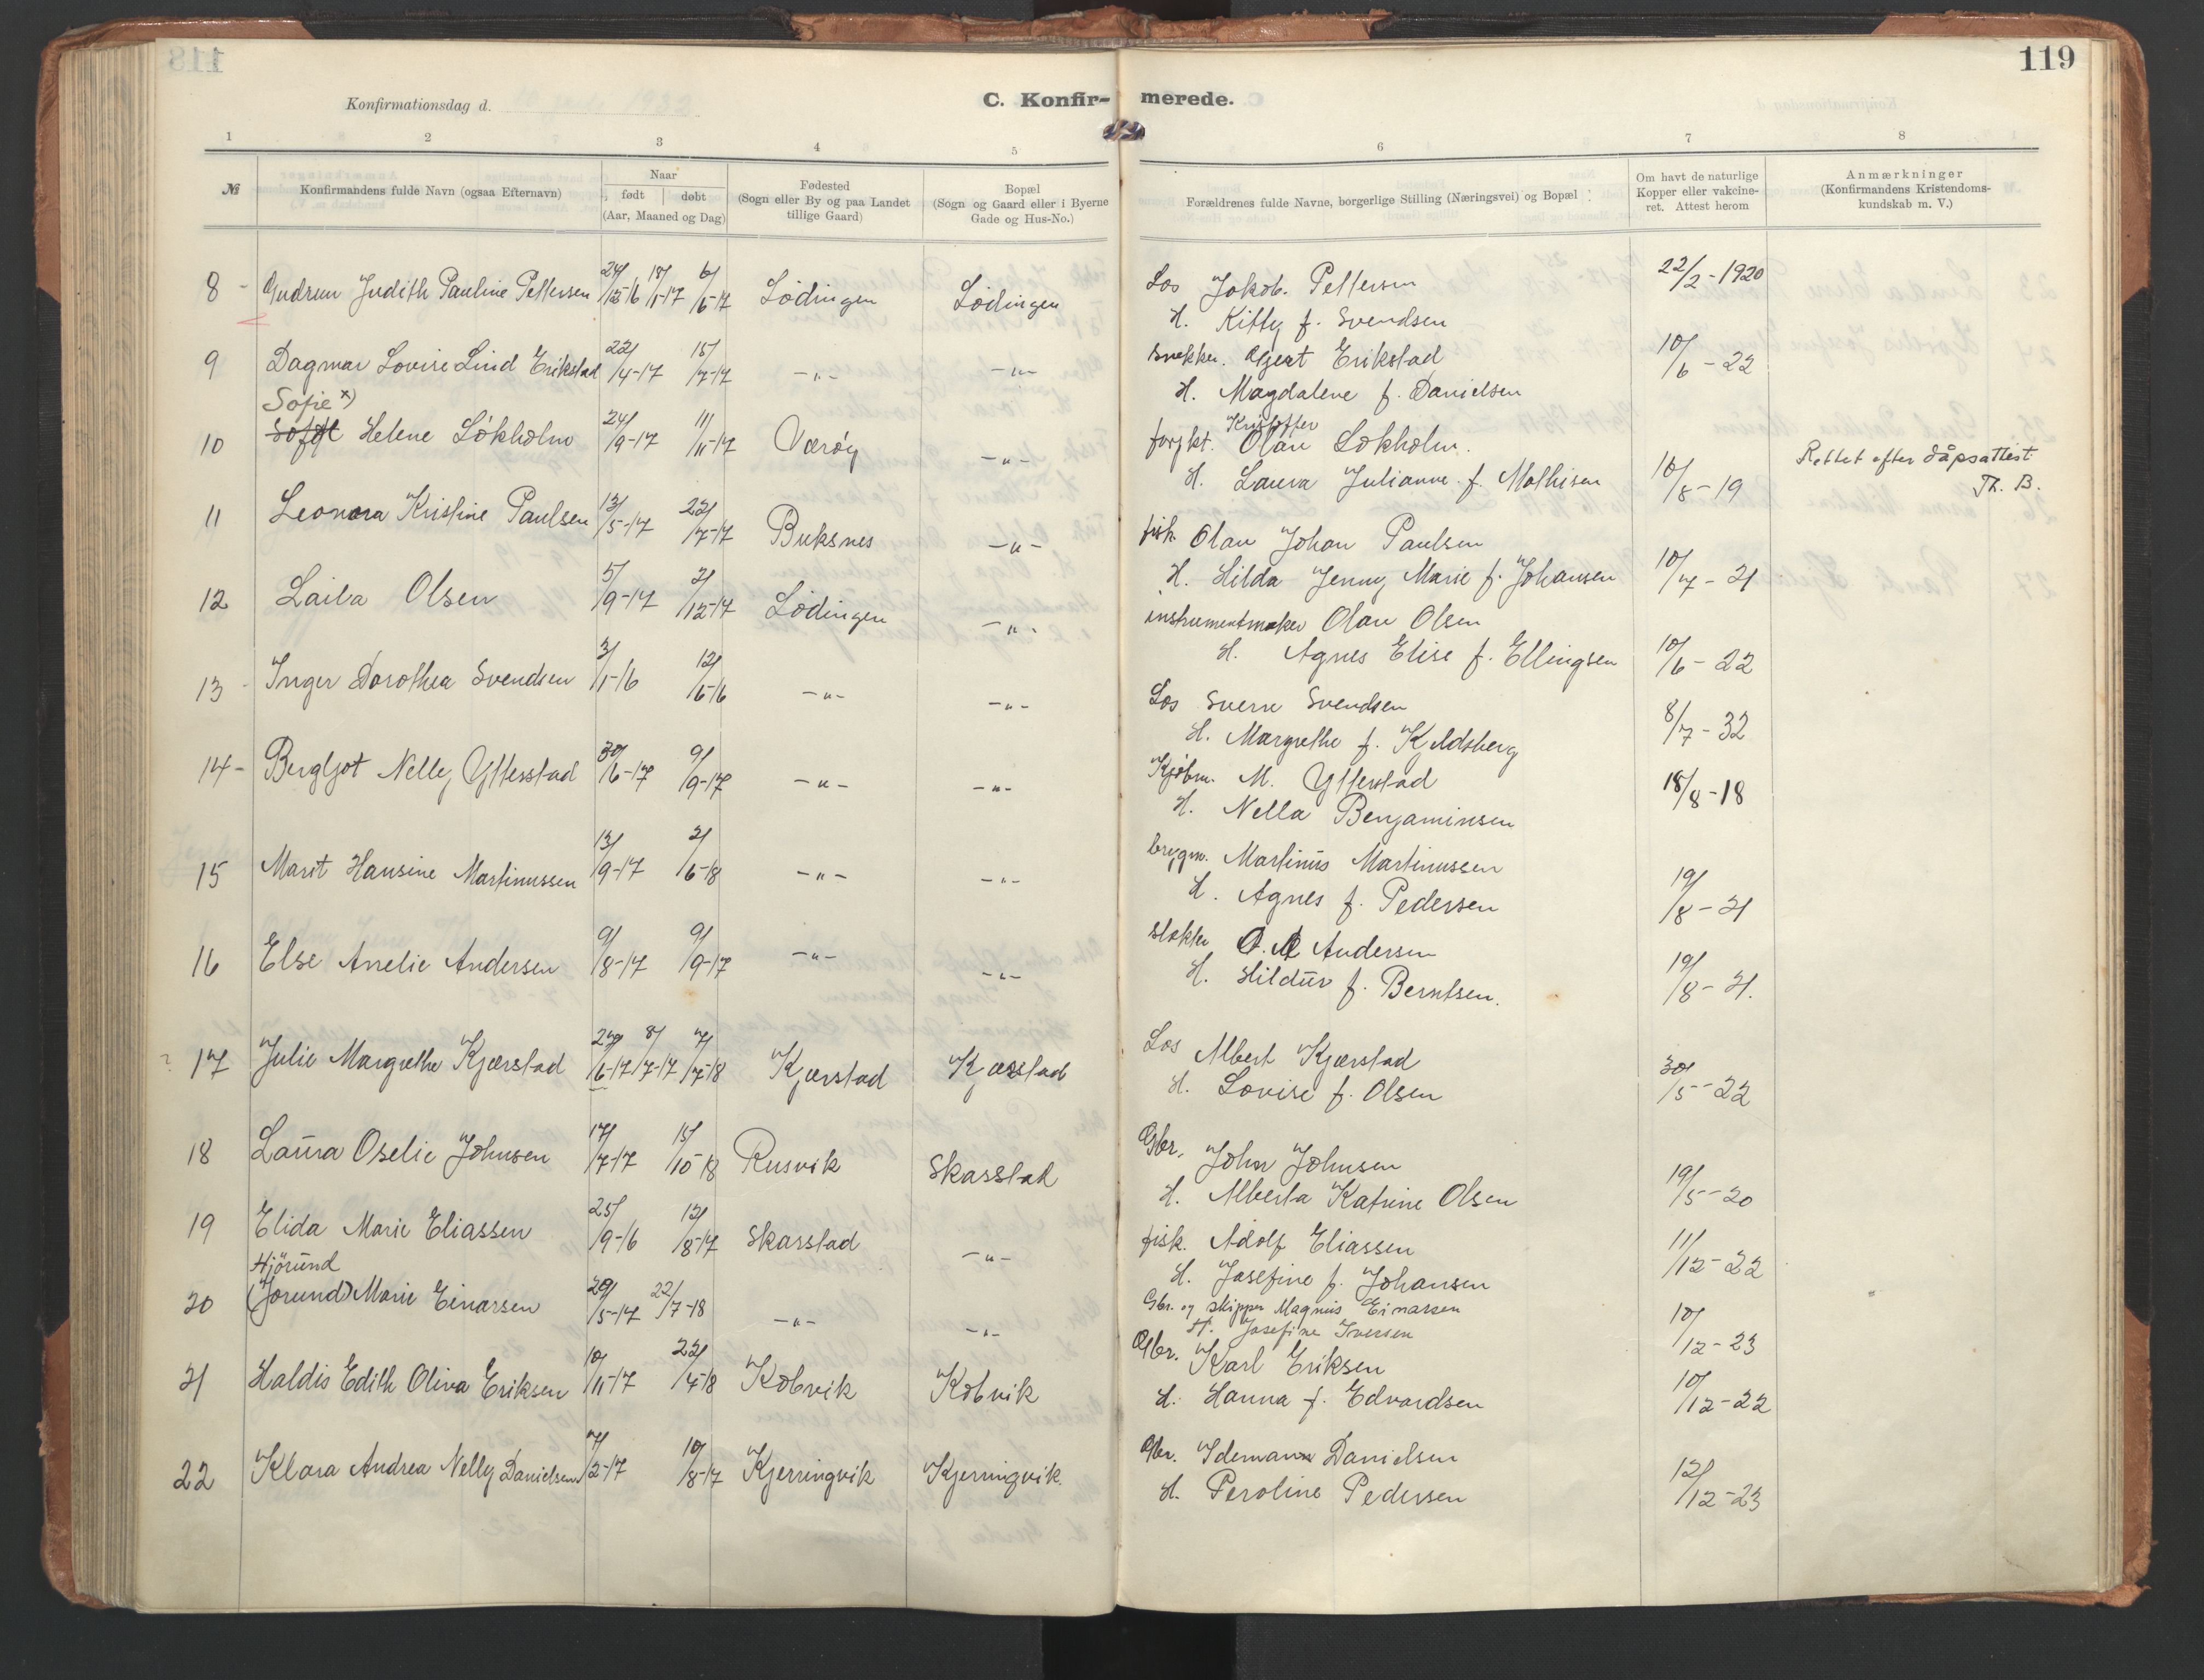 119
Konfirmationsdag d.
C. Konfir- merede.
1 2 3 4 5 6 7 8
№ Konfirmandens fulde Navn (ogsaa Efternavn)
Naar
født døbt
(Aar, Maaned og Dag)
Fødested
(Sogn eller By og paa Landet
tillige Gaard)
Bopæl
(Sogn og Gaard eller i Byerne
Gade og Hus-No.)
Forældrenes fulde Navne, borgerlige Stilling (Næringsvei) og Bopæl
Om havt de naturlige
Kopper eller vakcine-
ret. Attest herom
Anmærkninger
(Konfirmandens Kristendoms-
kundskab m. V.)
8 - Gudrun Judith Pauline Pettersen 24/12-16 18/1-17 6/5-17 Lödingen Lödingen Los Jakob Pettersen 22/2-1920
H. Kitty f. Svendsen
9 Dagmar Lovise Lind Erikstad 22/4-17 15/7-17 -"- -"- Snekker. Gjert Erikstad 10/6-22
H. Magdalene f. Danielsen
Sofie x)
10 Helene Lökholm 24/9-17 11/11-17 Værøy -"- Kristoffer
Olav Lökholm.
H. Laura Julianne f. Mathisen 10/8-19 Rettet efter dåpsattest
Th. B.
11 Leonora Kristine Paulsen 13/5-17 22/7-17 Buksnes -"- fisk Olav Johan Paulsen
H. Hilda Jenny Marie f. Johansen 10/7-21
12 Laila Olsen 5/9-17 2/12-17 Lödingen -"- instrumentmaker Olav Olsen
H. Agnes Elise f. Ellingsen 10/6-22
13 - Inger Dorothea Svendsen 3/1-16 12/6-16 -"- -"- Los Sverre Svendsen
H. Margrethe f. Kjeldsberg 8/7-32
14 - Bergljot Nelly Ytterstad 30/6-17 9/9-17 -"- -"- Kjøbm. M. Ytterstad 18/8-18
H. Nella Benjaminsen
15 Marit Hansine Martinussen 13/9-17 2/6-18 -"- -"- brygm. Martinus Martinussen
H. Agnes f. Pedersen 19/8-21
16 Else Amelie Andersen 9/8-17 9/9-17 -"- -"- slakter O. A Andersen
H. Hildur f. Berntsen. 19/8-21.
17 Julie Margrethe Kjærstad 29/6-17 8/7-17 7/7-18 Kjærstad Kjærstad Los Albert Kjærstad
H. Lovise f. Olsen 30/5-22
18 Laura Oselie Johnsen 17/7-17 15/10-18 Rusvik Skarstad Gbr. John Johnsen
H. Alberta Katrine Olsen 19/5-20
19 Elida Marie Eliassen 25/9-16 12/8-17 Skarstad -"- fisk. Adolf Eliassen 11/12-22
H. Josefine f. Johansen
Hjörund
20 (Jorund) Marie Einarsen 29/5-17 22/7-18 -"- -"- Gbr. og skipper Magnus Einarsen 10/12-23
H. Josefine Iversen
21 Haldis Edith Oliva Eriksen 10/11-17 22/4-18 Kobvik Kobvik Gbr. Karl Eriksen 10/12-22
H. Hanna f. Edvardsen
22 Klara Andrea Nelly Danielsen 7/2-17 10/8-17 Kjerringvik Kjerringvik. Gbr. Idemann Danielsen
H. Peroline Pedersen 12/12-23